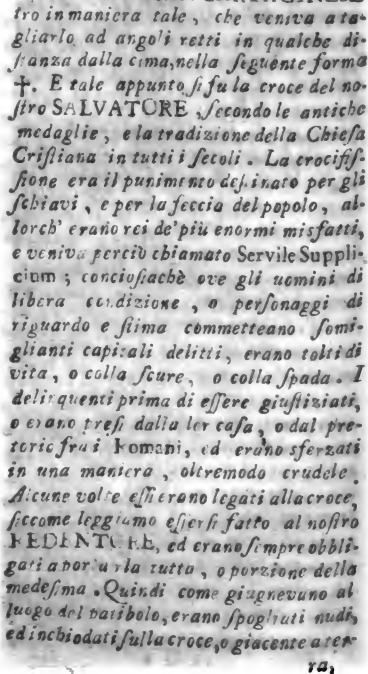 tro in maniera tale, che veniva a ta-
gliarlo ad angoli retti in qualche di-
ſtanza dalla cima, nella ſeguente forma
†. E tale appunto ſi fu la croce del no-
ſtro SALVATORE, ſecondo le antiche
medaglie, e la tradizione della Chieſa
Criſtiana in tutti i ſecoli. La crocifiſ-
ſione era il punimento deſtinato per gli
ſchiavi, e per la feccia del popolo, al-
lorch' erano rei de' più enormi misfatti,
e veniva perciò chiamato Servile Suppli-
cium; conciofiachè ove gli uomini di
libera condizione, o perſonaggi di
riguardo e ſtima commetteano ſomi-
glianti capitali delitti, erano tolti di
vita, o colla ſcure, o colla ſpada. I
delinquenti prima di eſſere giuſtiziati,
o erano preſi dalla lor caſa, o dal pre-
torio fra i Romani, ed erano sferzati
in una maniera, oltremodo crudele.
Alcune volte eſſi erano legati alla croce,
ſiccome leggiamo eſſerſi fatto al noſtro
REDENTORE, ed erano ſempre obbli-
gati a portarla tutta, o porzione della
medeſma. Quindi come giugnevano al
luogo del patibolo, erano ſpogliati nudi,
ed inchiodati ſulla croce, o giacente a ter-
ra,